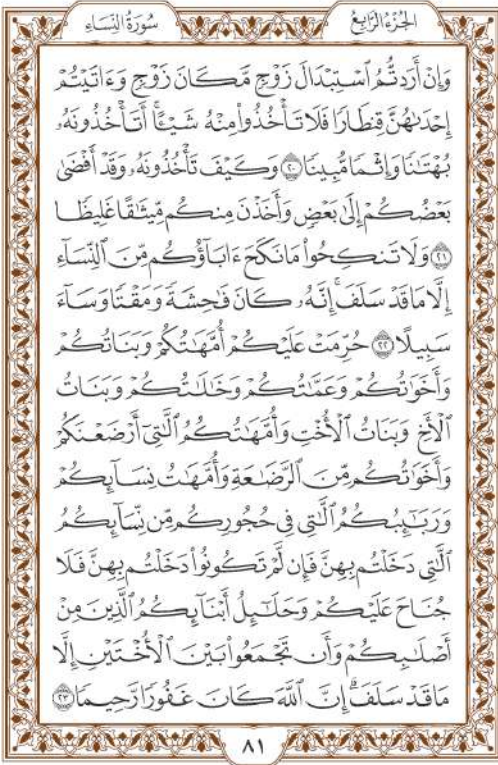 الجُزْءُ الرَّابِعُ
سُورَةُ النِّسَاءِ
وَإِنْ أَرَدتُّمُ ٱسْتِبْدَالَ زَوْجٍ مَّكَانَ زَوْجٍ وَءَاتَيْتُمْ
إِحْدَىٰهُنَّ قِنطَارًا فَلَا تَأْخُذُوا۟ مِنْهُ شَيْـًٔا ۚ أَتَأْخُذُونَهُۥ
بُهْتَٰنًا وَإِثْمًا مُّبِينًا ٢٠ وَكَيْفَ تَأْخُذُونَهُۥ وَقَدْ أَفْضَىٰ
بَعْضُكُمْ إِلَىٰ بَعْضٍ وَأَخَذْنَ مِنكُم مِّيثَٰقًا غَلِيظًا
٢١ وَلَا تَنكِحُوا۟ مَا نَكَحَ ءَابَآؤُكُم مِّنَ ٱلنِّسَآءِ
إِلَّا مَا قَدْ سَلَفَ ۚ إِنَّهُۥ كَانَ فَٰحِشَةً وَمَقْتًا وَسَآءَ
سَبِيلًا ٢٢ حُرِّمَتْ عَلَيْكُمْ أُمَّهَٰتُكُمْ وَبَنَاتُكُمْ
وَأَخَوَٰتُكُمْ وَعَمَّٰتُكُمْ وَخَٰلَٰتُكُمْ وَبَنَاتُ
ٱلْأَخِ وَبَنَاتُ ٱلْأُخْتِ وَأُمَّهَٰتُكُمُ ٱلَّٰتِىٓ أَرْضَعْنَكُمْ
وَأَخَوَٰتُكُم مِّنَ ٱلرَّضَٰعَةِ وَأُمَّهَٰتُ نِسَآئِكُمْ
وَرَبَٰٓئِبُكُمُ ٱلَّٰتِى فِى حُجُورِكُم مِّن نِّسَآئِكُمُ
ٱلَّٰتِى دَخَلْتُم بِهِنَّ فَإِن لَّمْ تَكُونُوا۟ دَخَلْتُم بِهِنَّ فَلَا
جُنَاحَ عَلَيْكُمْ وَحَلَٰٓئِلُ أَبْنَآئِكُمُ ٱلَّذِينَ مِنْ
أَصْلَٰبِكُمْ وَأَن تَجْمَعُوا۟ بَيْنَ ٱلْأُخْتَيْنِ إِلَّا
مَا قَدْ سَلَفَ ۗ إِنَّ ٱللَّهَ كَانَ غَفُورًا رَّحِيمًا ٢٣
٨١